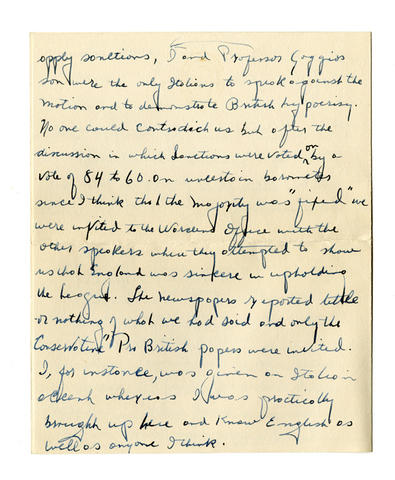 apply sanctions, I and Professor Goggios
son were the only Italians to speak against the
motion and to demonstrate British hypocrisy.
No one could contradict us but after the
discussion in which Sanctions were voted on by a
vote of 84 to 60. an uncertain barometer
since I think that the majority was "fixed" we
were invited to the Wardens Office with the
other speakers where they attempted to show
us that England was sincere in upholding
the League. The newspapers reported little
or nothing of what we had said and only the
Conservative "Pro British papers were invited.
I, for instance, was given an Italian
accent whereas I was practically
brought up here and know English as
well as anyone I think.